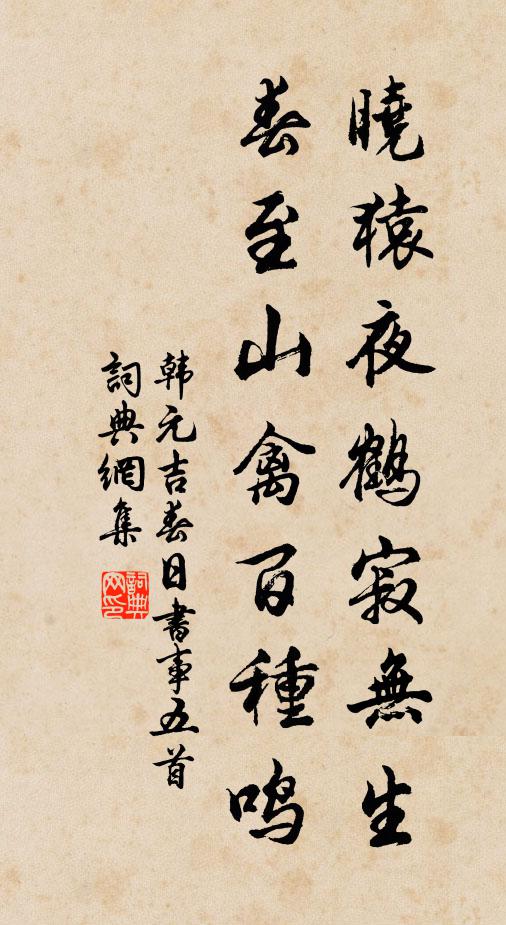 曉猿夜鶴寂無生
春至山禽百種鳴
韩元吉春日書事五首
詞典網集
詞典网印